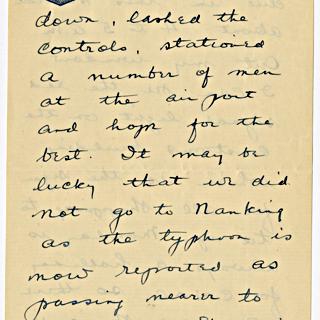 down, lashed the
controls, stationed
a number of men
at the air port
and hope for the
best. It may be
lucky that we did
not go to Nanking
as the typhoon is
now reported as
passing nearer to